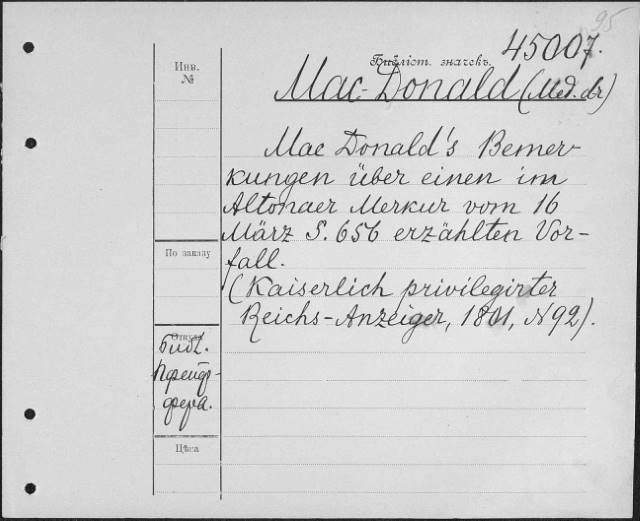 95
45007.
Инв.
№
Библіот. значекъ.
Mac-Donald (Med. dr)
Mac Donald's Bemer-
kungen über einen im
Altonaer Merkur vom 16
März S. 656 erzählten Vor-
fall.
(Kaiserlich privilegirter
Reichs-Anzeiger, 1801, N 92).
По заказу
Откуда
Библ.
Пфейф-
фера.
Цѣна